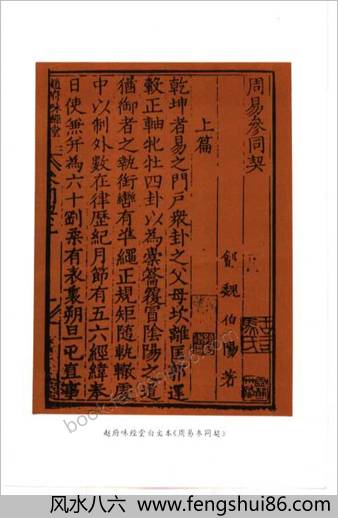 周易參同契
上篇
魏伯陽著
乾坤者易之門戶衆卦之父母坎離匡郭運
轂正軸牝牡四卦以為橐籥覆冒陰陽之道
猶御者之執銜轡有準繩正規矩隨軌轍處
中以制外數在律歷紀月節有五六經緯奉
日使兼并為六十剛柔有表裏朔旦屯直事
趙府味經堂
趙府味經堂白文本《周易参同契》
风水八六 www.fengshui86.com